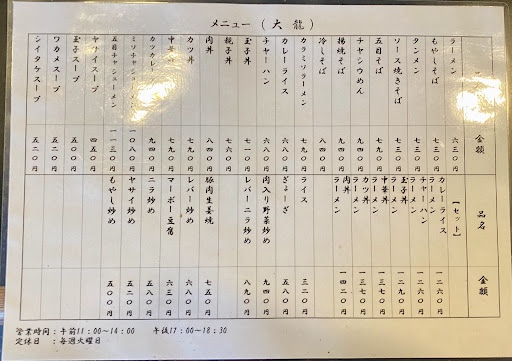 メニュー（大龍）
金額
ラーメン 六三〇円
もやしそば 七三〇円
タンメン 七三〇円
ソース焼きそば 七三〇円
五目そば
チャシウめん
揚焼そば 九四〇円
冷しそば
カラミソラーメン 七九〇円
カレーライス 六八〇円
チャーハン 六八〇円
玉子丼 七一〇円
親子丼 七六〇円
肉丼 八四〇円
カツ丼 七九〇円
中華丼 七九〇円
カツカレー 九四〇円
ミソチャシューメン 一〇八〇円
五目チャシューメン 一一三〇円
ヤサイスープ 四五〇円
玉子スープ
ワカメスープ 五二〇円
シイタケスープ 五二〇円
品名
金額
【セット】
カレーライス
ラーメン 一二六〇円
チャーハン
ラーメン 一二六〇円
玉子丼
ラーメン 一二九〇円
中華丼
ラーメン 一三七〇円
カツ丼
ラーメン 一三七〇円
肉丼
ラーメン 一四二〇円
ライス 三二〇円
ぎょーざ 五八〇円
肉入り野菜炒め 九四〇円
レバーニラ炒め 八九〇円
豚肉生姜焼 七五〇円
レバー炒め 六八〇円
マーボー豆腐 六三〇円
ニラ炒め 五八〇円
ヤサイ炒め 五二〇円
もやし炒め 五〇〇円
営業時間：午前11：00～14：00 午後17：00～18：30
定休日：毎週火曜日